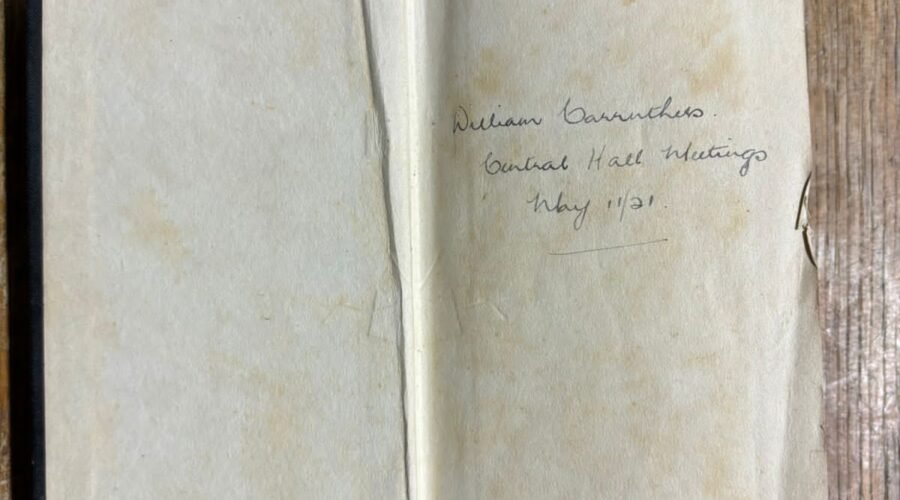 William Carruthers.
Central Hall Meetings
May 11/21.